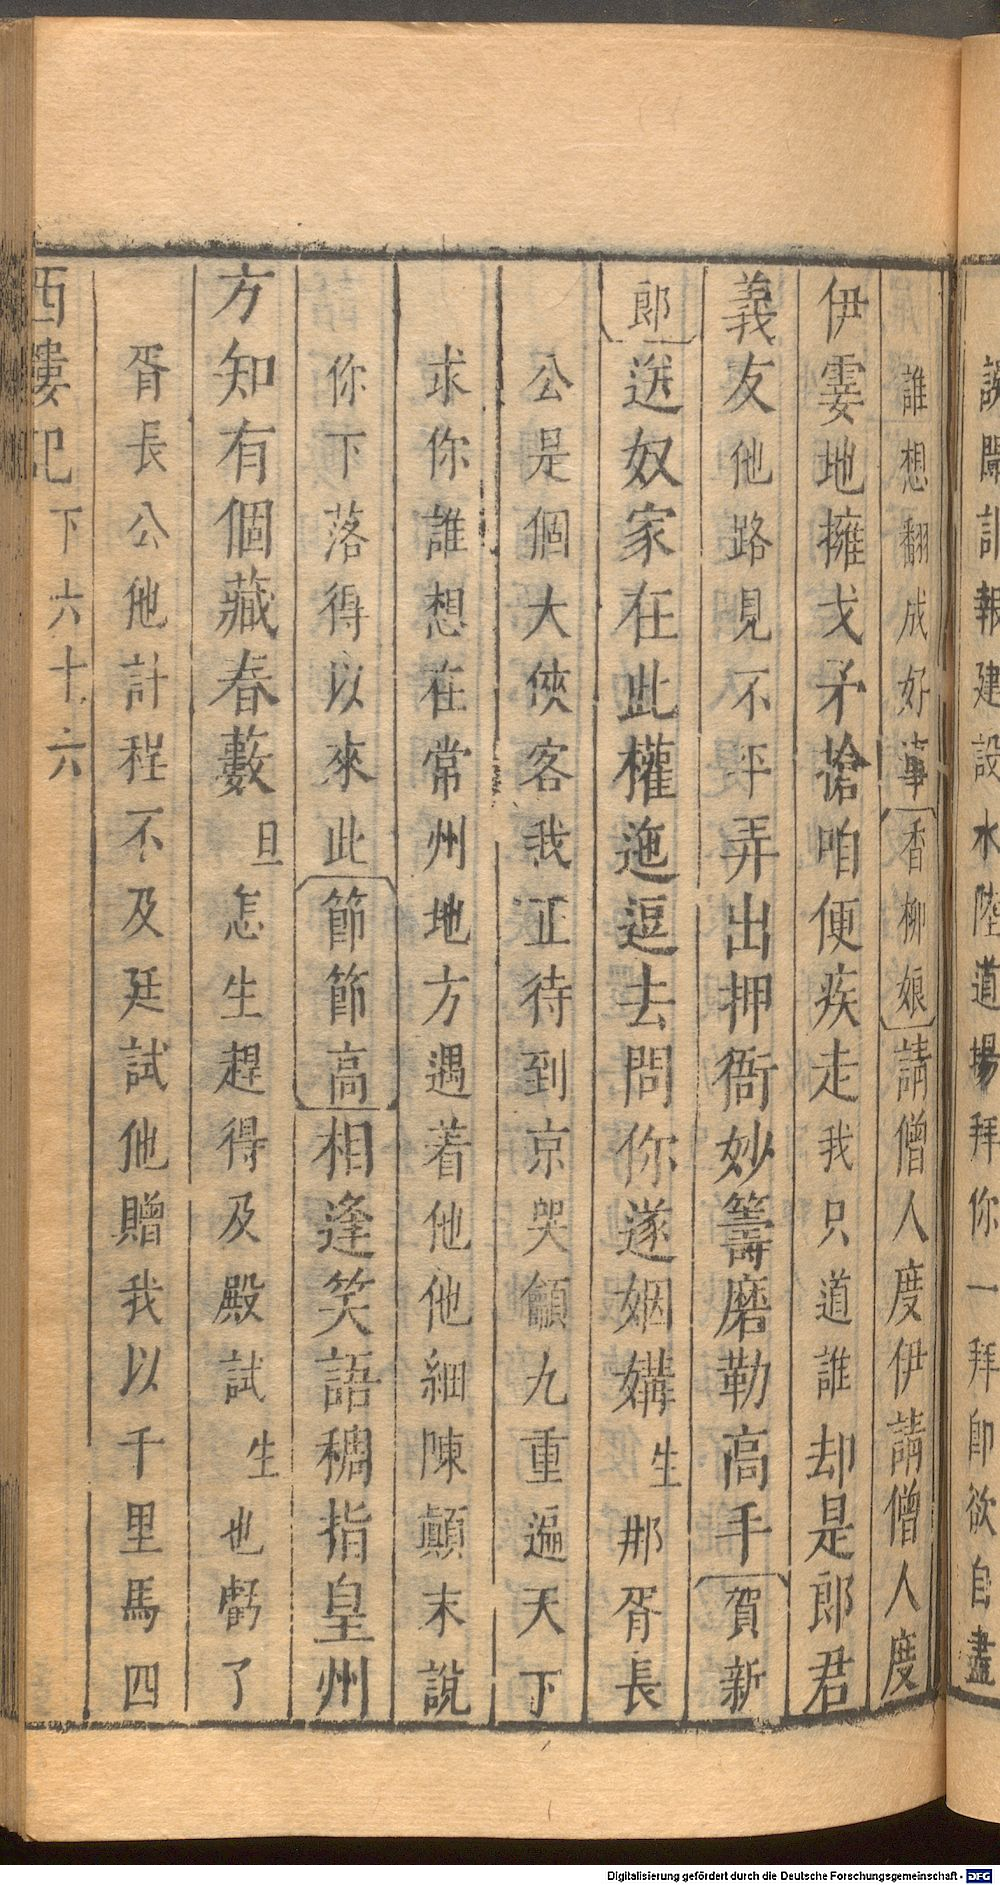 設聞訃報建設水陸道場拜你一拜即欲自盡
誰想翻成好事香柳娘請僧人度伊請僧人度
伊霎地擁戈矛搶咱便疾走我只道誰却是郎君
義友他路見不平弄出押衙妙籌磨勒高手賀新
郎送奴家在此權迤逗去問你遂姻媾生那胥長
公是個大俠客我正待到京哭籲九重遍天下
求你誰想在常州地方遇着他他細陳顛末說
你下落得以來此節節高相逢笑語稠指皇州
方知有個藏春藪旦怎生趕得及殿試生也虧了
胥長公他計程不及廷試他贈我以千里馬四
西樓記下六十六
Digitalisierung gefördert durch die Deutsche Forschungsgemeinschaft - DFG